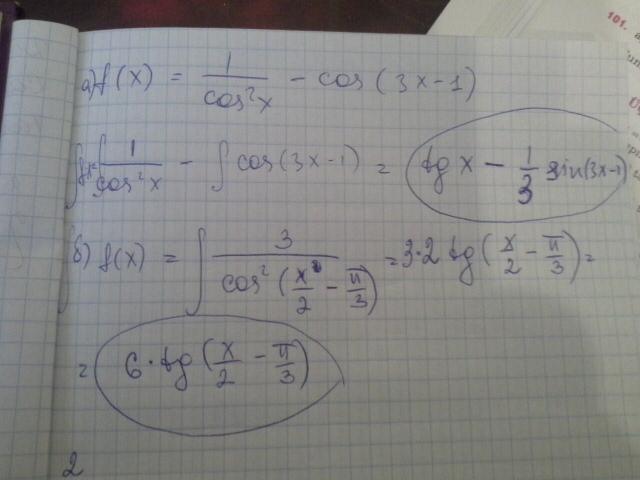 а) f(x) = 1/cos²x − cos(3x−1)
∫ 1/cos²x − ∫ cos(3x−1) = tg x − 1/3 sin(3x−1)
б) f(x) = ∫ 3/cos²(x/2 − π/3) = 3·2 tg(x/2 − π/3) =
= 6·tg(x/2 − π/3)
2
101.